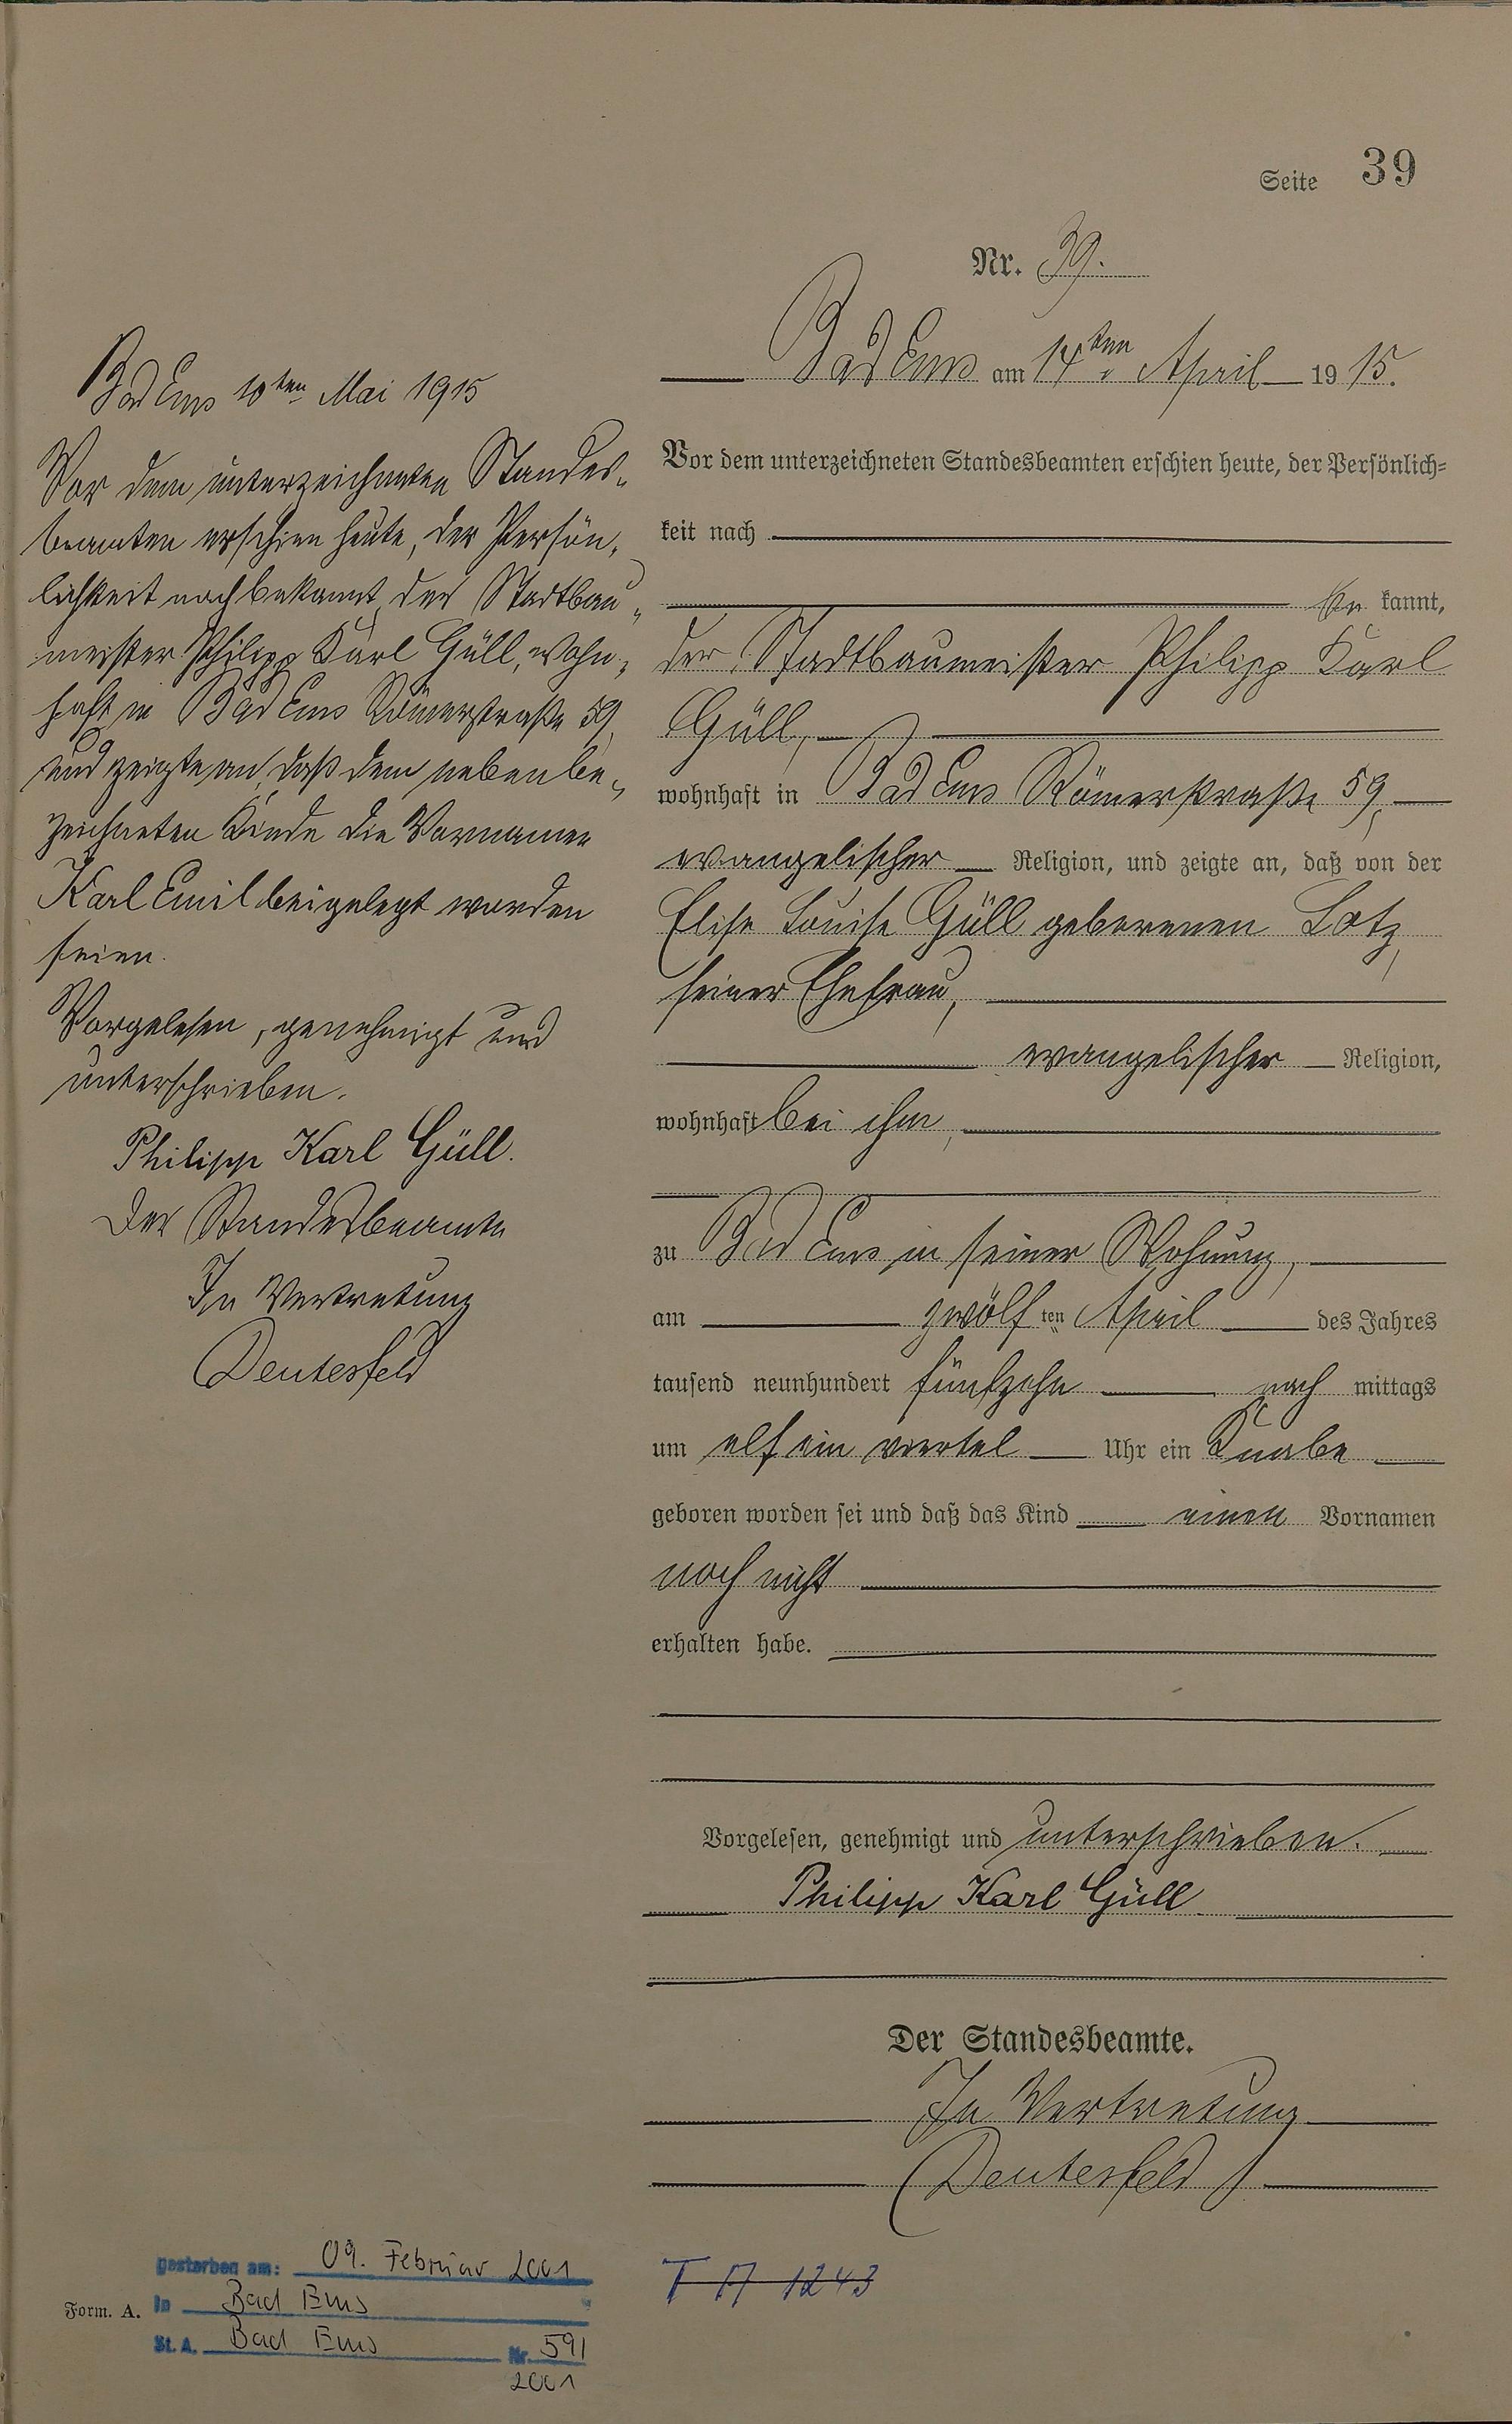 Seite 39
Nr. 39.
Bad Ems am 14ten April 1915.
Vor dem unterzeichneten Standesbeamten erschien heute, der Persönlich=
keit nach
be kannt,
der Stadtbaumeister Philipp Karl
Güll,
wohnhaft in Bad Ems Römerstraße 59,
evangelischer Religion, und zeigte an, daß von der
Elise Louise Güll geborenen Lotz,
seiner Ehefrau,
evangelischer Religion,
wohnhaft bei ihm,
zu Bad Ems in seiner Wohnung,
am zwölf ten April des Jahres
tausend neunhundert fünfzehn nach mittags
um elf ein viertel Uhr ein Knabe
geboren worden sei und daß das Kind einen Vornamen
noch nicht
erhalten habe.
Vorgelesen, genehmigt und unterschrieben.
Philipp Karl Güll
Der Standesbeamte.
In Vertretung
Deutesfeld
Bad Ems 10ten Mai 1915
Vor dem unterzeichneten Standes-
beamten erschien heute, der Persön-
lichkeit nach bekannt, der Stadtbau-
meister Philipp Karl Güll, wohn-
haft in Bad Ems Römerstraße 59,
und zeigte an, daß dem nebenbe-
zeichneten Kinde die Vornamen
Karl Emil beigelegt worden
seien.
Vorgelesen, genehmigt und
unterschrieben.
Philipp Karl Güll.
Der Standesbeamte
In Vertretung
Deutesfeld
gestorben am: 09. Februar 2001
in Bad Ems
St. A. Bad Ems Nr. 591
2001
Form. A.
T A 1243